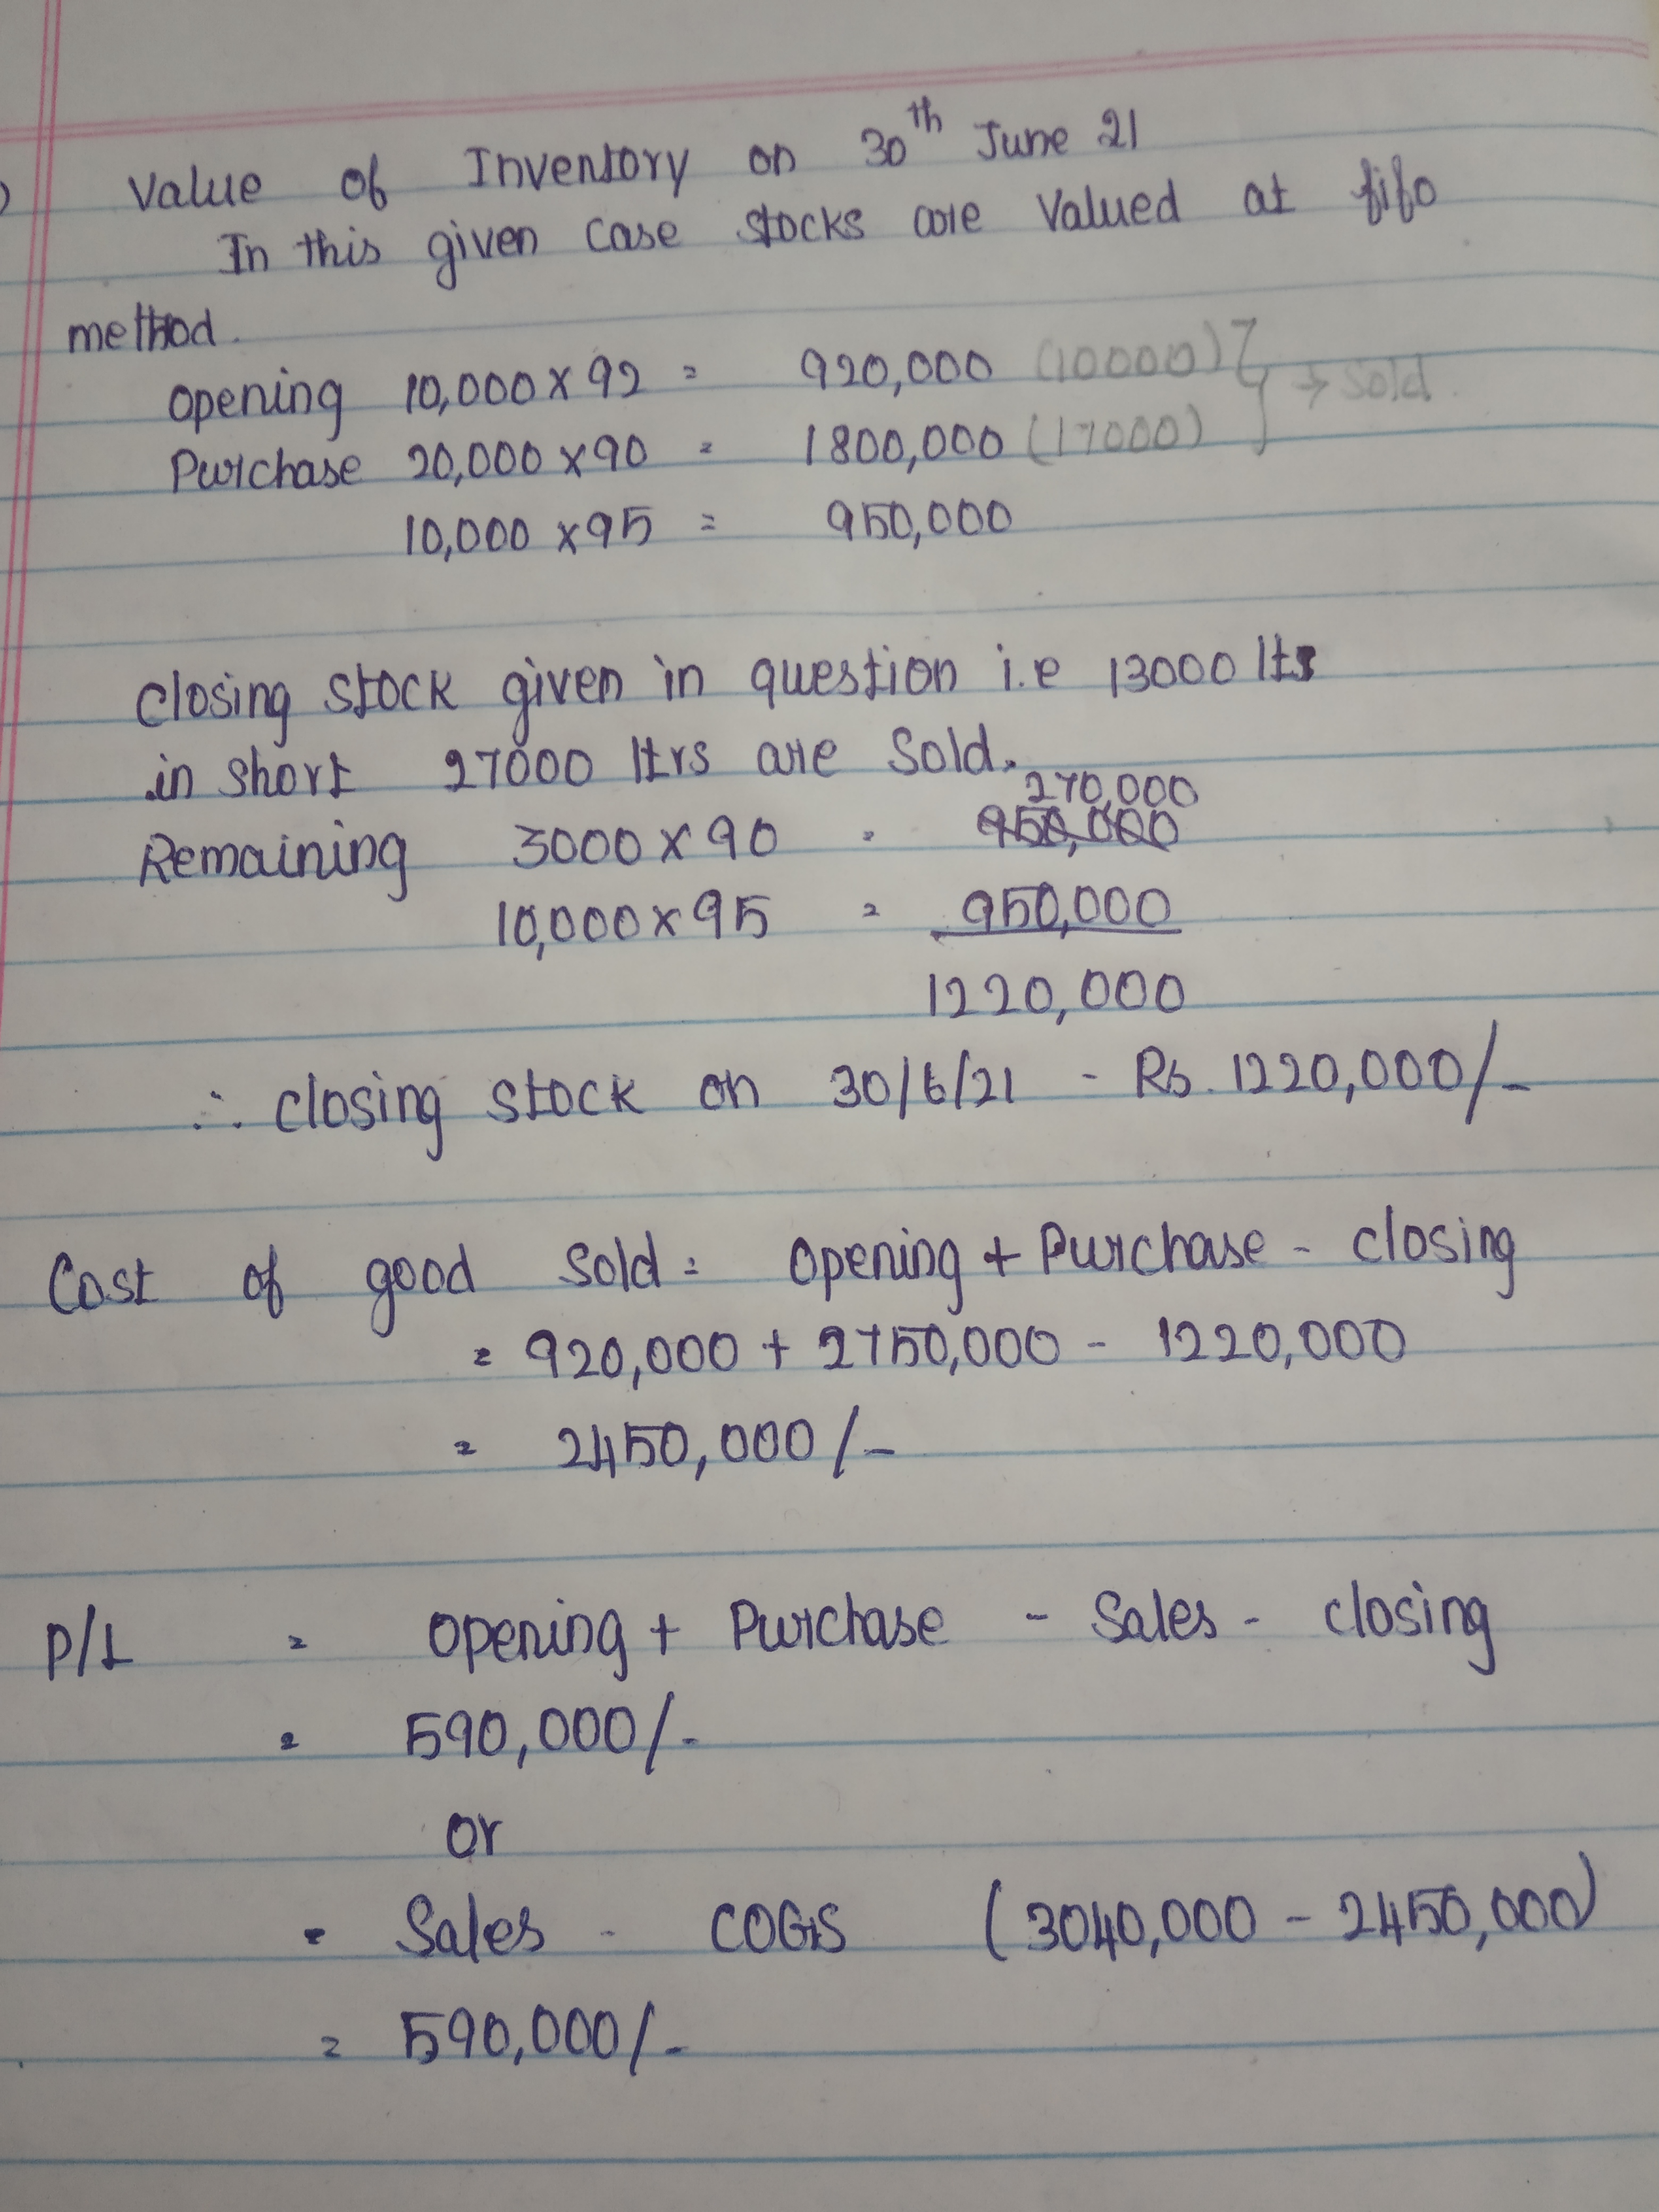 Value of Inventory on 30th June 21
In this given case stocks are valued at fifo
method.
Opening 10,000 x 92 = 920,000 (10000) } → Sold.
Purchase 20,000 x 90 = 1800,000 (17000)
10,000 x 95 = 950,000
Closing stock given in question i.e 13000 lts
in short 27000 ltrs are Sold.
270,000
Remaining 3000 x 90 = 950,000
10,000 x 95 = 950,000
1220,000
∴ Closing stock on 30/6/21 - Rs. 1220,000/-
Cost of good sold = Opening + Purchase - closing
= 920,000 + 2750,000 - 1220,000
= 2450,000/-
P/L = Opening + Purchase - Sales - closing
= 590,000/-
or
= Sales - COGS (3040,000 - 2450,000)
= 590,000/-